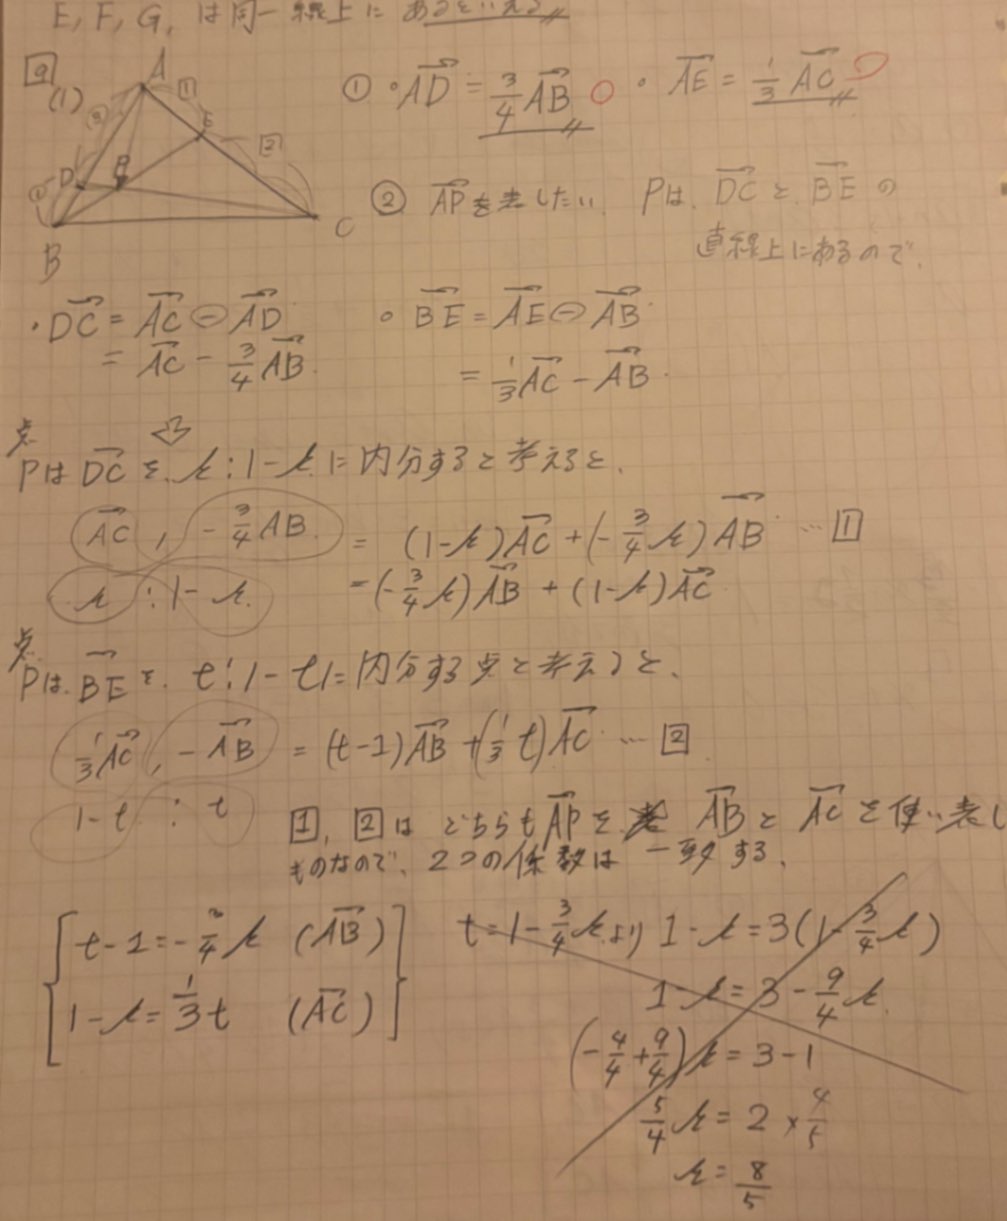 E, F, G, は同一線上にあるといえる
9
(1)
A
①
③
E
②
D
P
①
B
C
① ・AD→ = 3/4 AB→ ・ AE→ = 1/3 AC→
② AP→を表したい Pは、DC→と、BE→の
直線上にあるので、
・DC→ = AC→ - AD→
= AC→ - 3/4 AB→.
・BE→ = AE→ - AB→
= 1/3 AC→ - AB→.
点
Pは DC→を、s:1-s に内分すると考えると、
AC→, -3/4 AB = (1-s)AC→ + (-3/4 s)AB→ … 1
s : 1-s. = (-3/4 s)AB→ + (1-s)AC→
点
Pは、BE→を、t:1-tに内分する点と考えると、
1/3 AC→, -AB→ = (t-1)AB→ + (1/3 t)AC→ … 2
1-t : t
1, 2は どちらもAP→を AB→と AC→を使い表し
ものなので、2つの係数は 一致する、
t-1 = -3/4 s (AB→)
1-s = 1/3 t (AC→)
t = 1 - 3/4 s より 1-s = 3(1 - 3/4 s)
1-s = 3 - 9/4 s.
(-4/4 + 9/4)s = 3-1
5/4 s = 2 × 4/5
s = 8/5